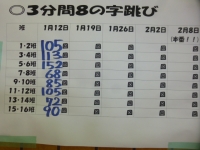 ○3分間8の字跳び
班 1月12日 1月19日 1月26日 2月2日 2月8日
(本番!!)
1・2班 105回 回 回 回 回
3・4班 113回 回 回 回 回
5・6班 152回 回 回 回 回
7・8班 68回 回 回 回 回
9・10班 85回 回 回 回 回
11・12班 105回 回 回 回 回
13・14班 回 回 回 回
15・16班 90回 回 回 回 回